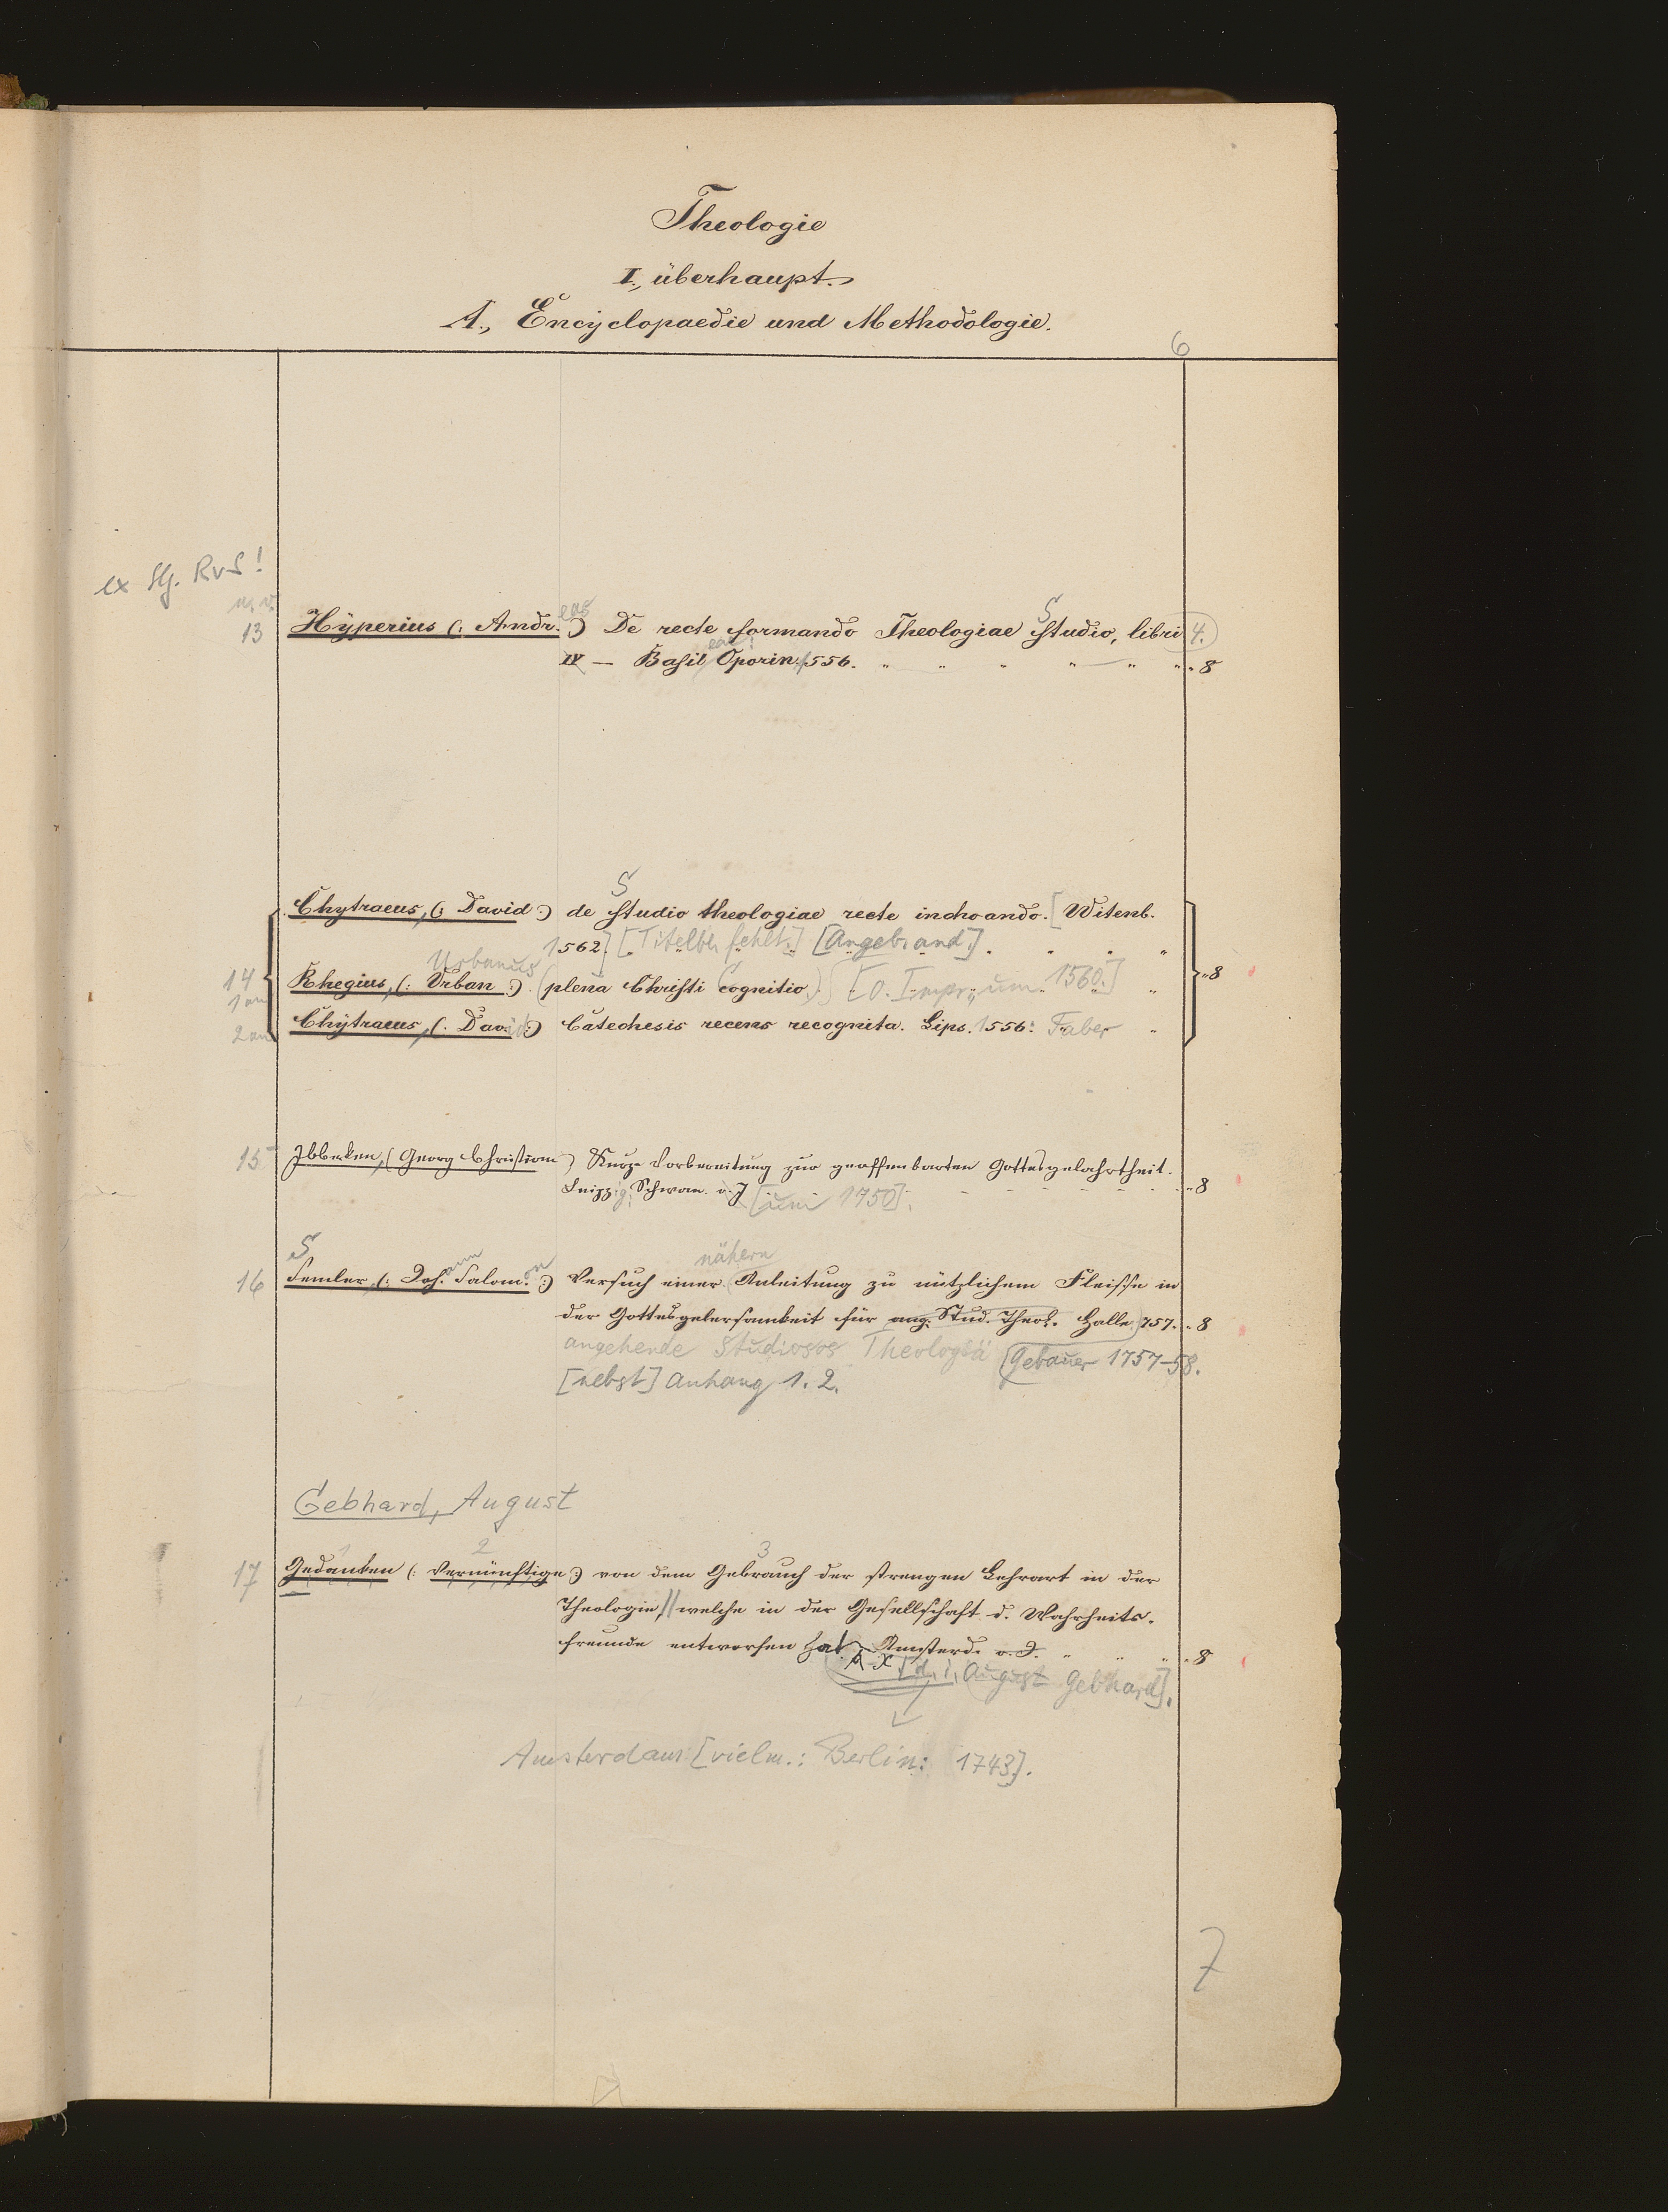 Theologie
I., überhaupt.
A., Encyclopaedie und Methodologie.
6
ex Slg. RvS!
13 Hyperius (: Andr.eas :) De recte formando Theologiae Studio, libri 4.
IV — Basil Oporin. 1556. " " " " " " " 8
Chytraeus, (: David :) de Studio theologiae recte inchoando. [Witenb.
1562.] [Titelbl. fehlt.] [Angebrand.]
Urbanus
14 Rhegius, (: Urban :) (plena Christi Cognitio.) [O. Impr. um 1560.] " 8
1 an
2 an Chytraeus, (: David :) Catechesis recens recognita. Lips. 1556. Faber "
15 Ibbeken, (Georg Christian) Kurze Vorbereitung zur geoffenbarten Gottesgelahrtheit.
Leipzig, Schwan. o. J [um 1750]. " 8
nähern
16 Semler, (: Joh.ann Salom.on :) Versuch einer Anleitung zu nützlichem Fleisse in
der Gottesgelersamkeit für ang. Stud. Theol. Halle 757. " 8
angehende Studiosos Theologiä Gebauer 1757–58.
[nebst] Anhang 1. 2.
Gebhard, August
2 3
17 Gedanken (: Vernünftige :) von dem Gebrauch der strengen Lehrart in der
Theologie, // welche in der Gesellschaft d. Wahrheits-
freunde entworfen hat Amsterd. o. J. " " " 8
A. X [d. i. August Gebhard].
Amsterdam [vielm.: Berlin: 1743].
7